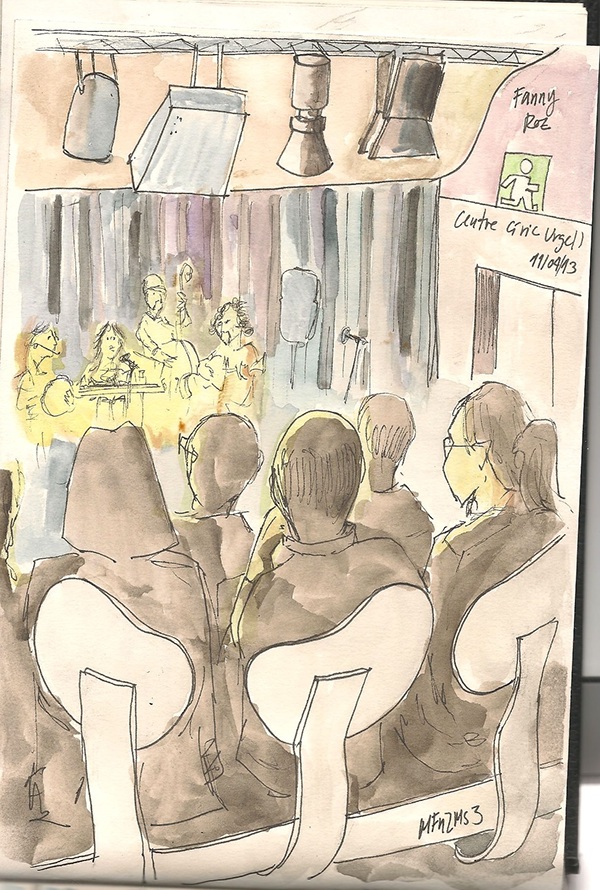 Fanny
Roz
Centre Cívic Urgell
11/04/13